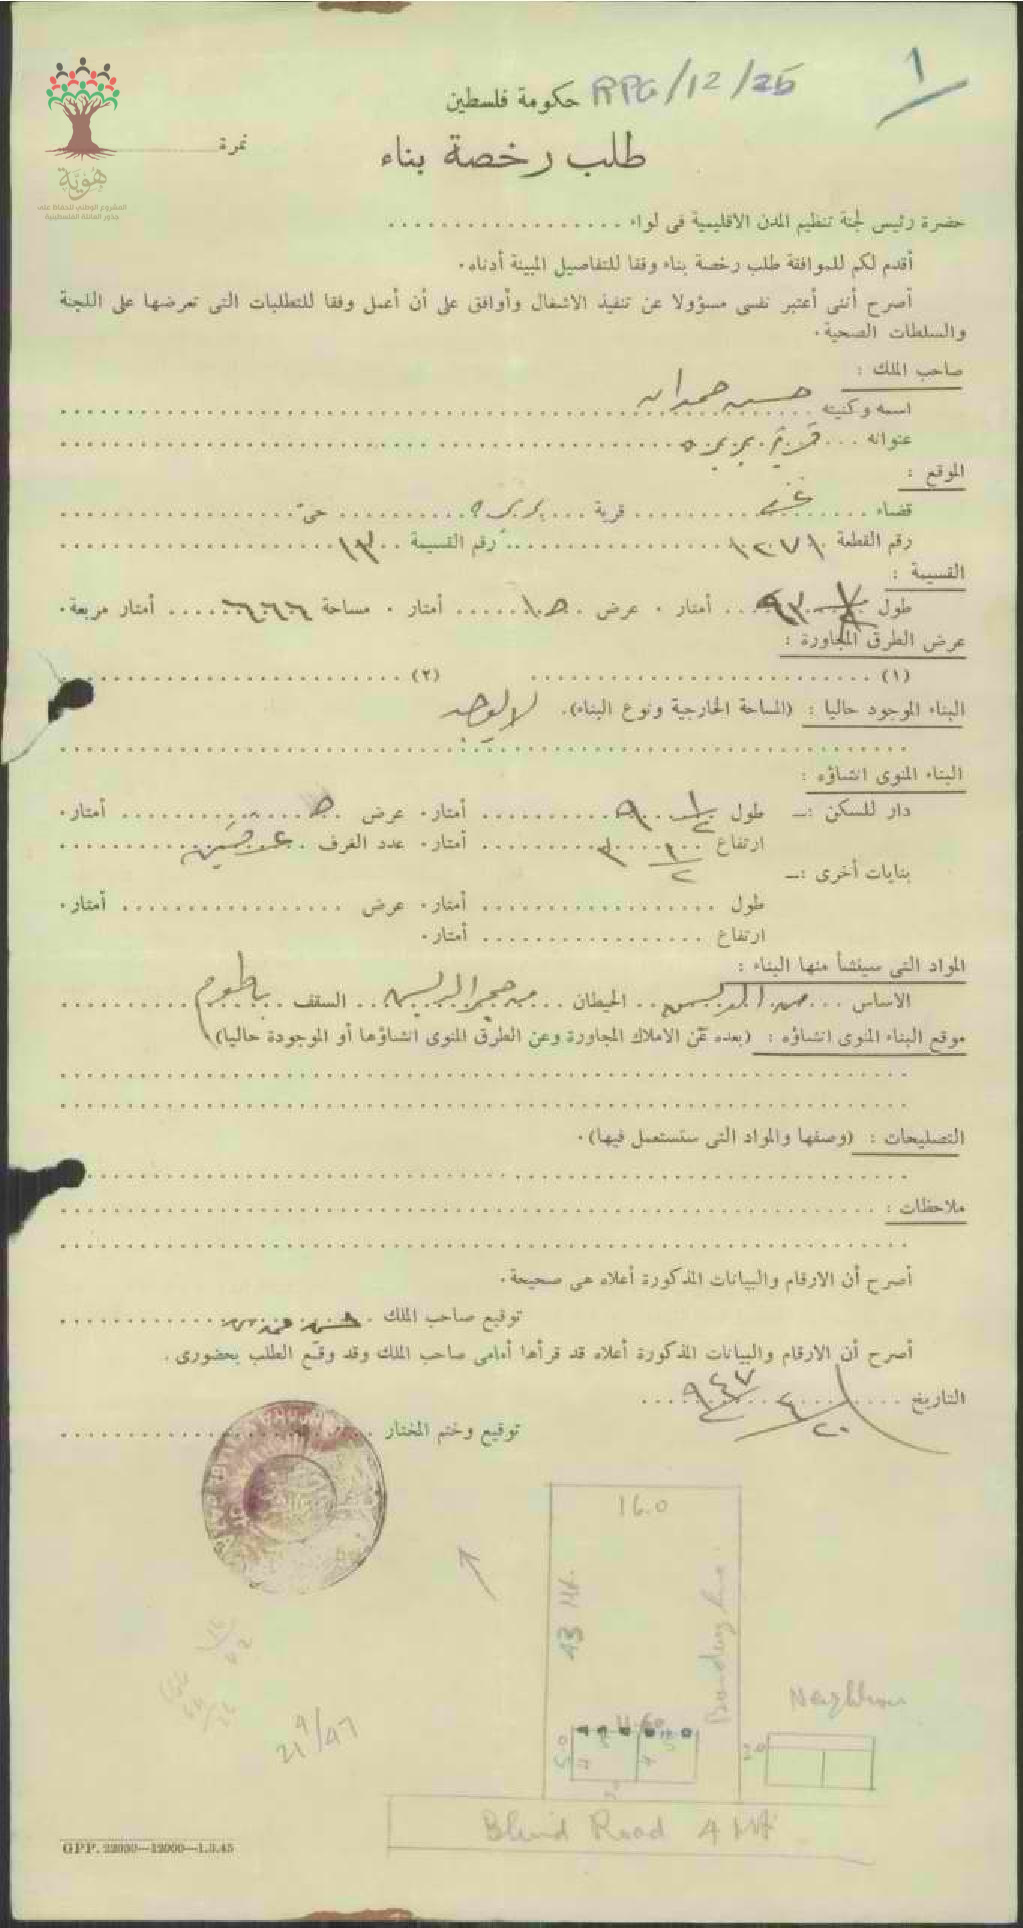 RPG/12/25
1
حكومة فلسطين
نمرة
طلب رخصة بناء
هوية
المشروع الوطني للحفاظ على
جذور العائلة الفلسطينية
حضرة رئيس لجنة تنظيم المدن الاقليمية فى لواء
أقدم لكم للموافقة طلب رخصة بناء وفقا للتفاصيل المبينة أدناه.
أصرح أننى أعتبر نفسى مسؤولا عن تنفيذ الاشغال وأوافق على أن أعمل وفقا للتطلبات التى تعرضها على اللجنة
والسلطات الصحية.
صاحب الملك :
اسمه وكنيته حسين حمدان
عنوانه قرية بربره
الموقع :
قضاء غزة قرية بربره حى
رقم القطعة رقم القسيمة ١٣
القسيمة :
طول أمتار. عرض أمتار. مساحة ٦٦٦ أمتار مربعة.
عرض الطرق المجاورة :
(١) (٢)
البناء الموجود حاليا : (المساحة الخارجية ونوع البناء). لا يوجد
البناء المنوى انشاؤه :
دار للسكن :ــ طول ٩ ١/٢ أمتار. عرض ٥ أمتار.
ارتفاع ٣ ١/٢ أمتار. عدد الغرف
بنايات أخرى :ــ
طول أمتار. عرض أمتار.
ارتفاع أمتار.
المواد التى سينشأ منها البناء :
الاساس الحيطان من حجر السقف باطوم
موقع البناء المنوى انشاؤه : (بعده عن الاملاك المجاورة وعن الطرق المنوى انشاؤها أو الموجودة حاليا)
التصليحات : (وصفها والمواد التى ستستعمل فيها).
ملاحظات :
أصرح أن الارقام والبيانات المذكورة أعلاه هى صحيحة.
توقيع صاحب الملك
أصرح أن الارقام والبيانات المذكورة أعلاه قد قرأها أمامى صاحب الملك وقد وقع الطلب بحضورى .
التاريخ ٢٠/٤/٩٤٧
توقيع وختم المختار
16.0
43 Mt.
Boundary line
Neighbour
5.0
Blind Road 4 Mt
21/4/47
GPP. 22030—12000—1.3.45